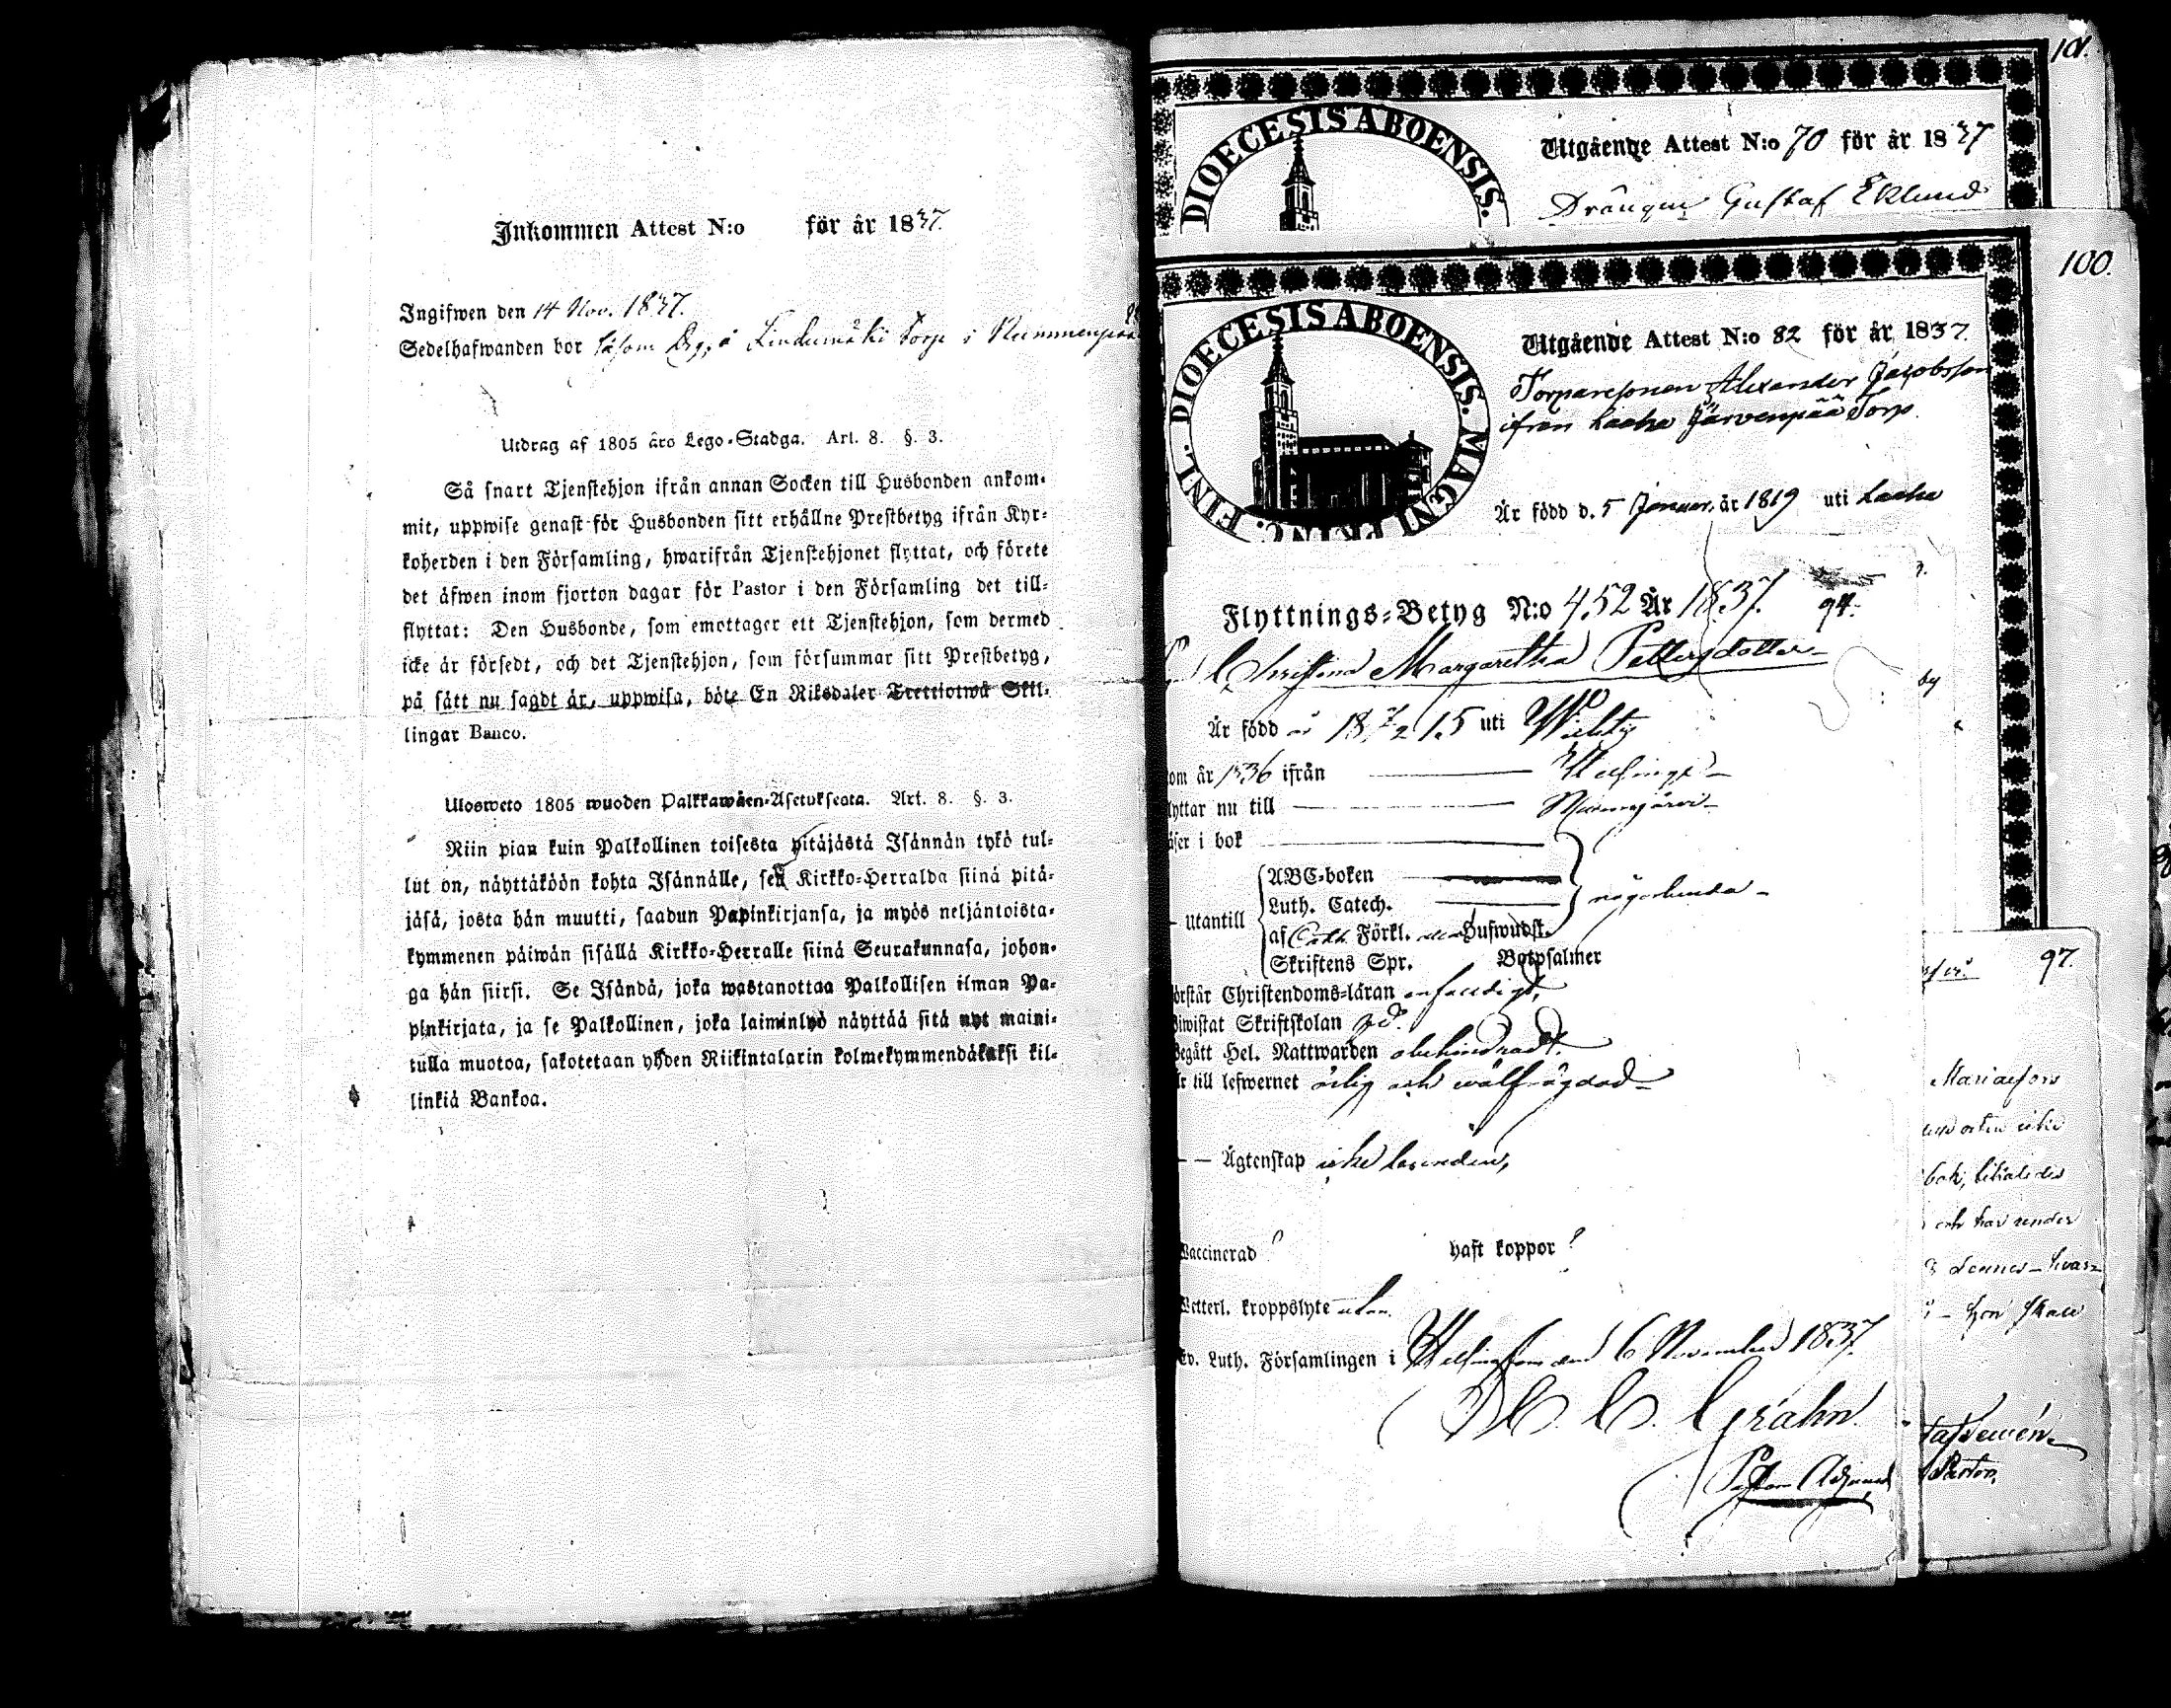 Inkommen Attest N:o för år 1837.
Ingifwen den 14 Nov. 1837.
Sedelhafwanden bor såsom Drg, å Lindumäki Torp i Nummenpää
Utdrag af 1805 års Lego-Stadga. Art. 8. §. 3.
Så snart Tjenstehjon ifrån annan Socken till Husbonden ankom-
mit, uppwise genast för Husbonden sitt erhållne Prestbetyg ifrån Kyr-
koherden i den Församling, hwarifrån Tjenstehjonet flyttat, och förete
det äfwen inom fjorton dagar för Pastor i den Församling det till-
flyttat: Den Husbonde, som emottager ett Tjenstehjon, som dermed
icke är försedt, och det Tjenstehjon, som försummar sitt Prestbetyg,
på sätt nu sagdt är, uppwisa, böte En Riksdaler Trettiotwå Skil-
lingar Banco.
Ulosweto 1805 wuoden Palkkawäen-Asetuksesta. Art. 8. §. 3.
Niin pian kuin Palkollinen toisesta pitäjästä Isännän tykö tul-
lut on, näyttäköön kohta Isännälle, sen Kirkko-Herralda siinä pitä-
jäsä, josta hän muutti, saadun Papinkirjansa, ja myös neljäntoista-
kymmenen päiwän sisällä Kirkko-Herralle siinä Seurakunnasa, johon-
ga hän siirsi. Se Isändä, joka wastanottaa Palkollisen ilman Pa-
pinkirjata, ja se Palkollinen, joka laiminlyö näyttää sitä nyt maini-
tulla muotoa, sakotetaan yhden Riikintalarin kolmekymmendäkaksi kil-
linkiä Bankoa.
101.
DIOECESIS ABOENSIS.
Utgående Attest N:o 70 för år 1837
Drängen Gustaf Eklund
100.
DIOECESIS ABOENSIS. MAGNI PRINC. FINL.
Utgående Attest N:o 82 för år 1837.
Torparesonen Alexander Jacobsson
ifrån Laaha Järvenpää Torp.
Är född d. 5 Januar. år 1819 uti Laaha
Flyttnings-Betyg N:o 452 År 1837. 94.
Christina Margaretha Pettersdotter
Är född å 18 7/2 15 uti Wichtis
om år 1836 ifrån Helsinge
lyttar nu till Nurmijärvi
äser i bok
utantill
ABC-boken
Luth. Catech. någorlunda
af Förkl. Hufwudst.
Skriftens Spr. Botpsalmer
örstår Christendoms-läran enfaldigt,
iwistat Skriftskolan
egått Hel. Nattwarden obehindradt.
r till lefwernet ärlig och wälfrägdad
Ägtenskap icke ledig
Vaccinerad? haft koppor?
Vetterl. kroppslyte utan.
Ev. Luth. Församlingen i Helsingfors den 6 November 1837.
Grahn
Pastors Adjunct
97.
Mariaefors
bok,
och har
hon skall
Pastor.